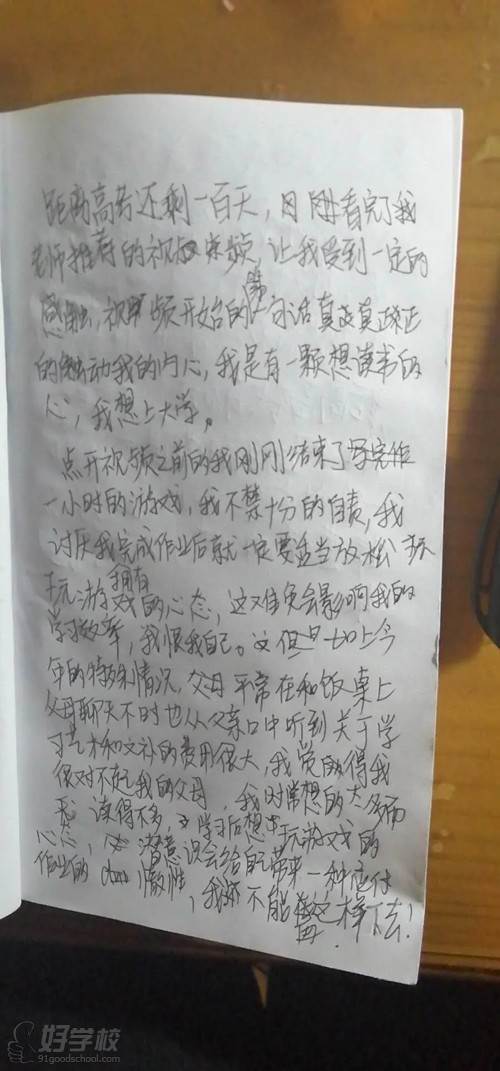 距离高考还剩一百天，刚看完了我
老师推荐的视频，让我受到一定的
感触，视频开始的第一句话真正
的触动我的内心，我是有一颗想读书的
心，我想上大学。
点开视频之前的我刚刚结束了写完作
一小时的游戏，我不禁十分的自责，我
讨厌我完成作业后就一定要适当放松 玩
玩游戏的心态，这难免会影响我的
拥有
学习效率，我恨我自己。加上今
年的特殊情况，父母平常在和饭桌上
父母聊天不时也从父亲口中听到关于学
习艺术和文补的费用很大，我觉的得我
很对不起我的父母，我时常想的太多而
读得不多，学习后想玩游戏的
心，潜意识会给自己带来一种应付
作业的 惰性，我不能 这样下去！
好学校
91goodschool.com